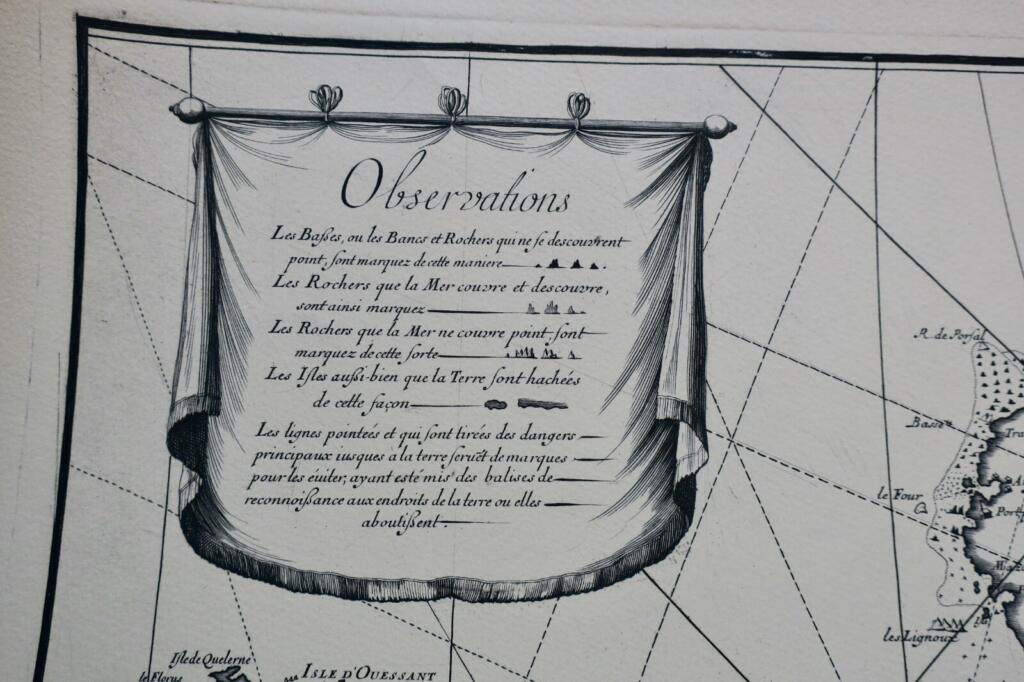 Observations
Les Baſses, ou les Bancs et Rochers qui ne ſe descouvrent
point, ſont marquez de cette maniere
Les Rochers que la Mer couvre et descouvre,
sont ainsi marquez
Les Rochers que la Mer ne couvre point, ſont
marquez de cette ſorte
Les Iſles auſsi-bien que la Terre ſont hachées
de cette façon
Les lignes pointeés et qui ſont tirées des dangers
principaux iusques a la terre ſeruẽt de marques
pour les éuiter, ayant esté mis des balises de
reconnoiſsance aux endroits de la terre ou elles
aboutiſsent
R. de Porsal
Basse
le Four
les Lignoux
Iſle de Quelerne
le Florus
ISLE D'OUESSANT